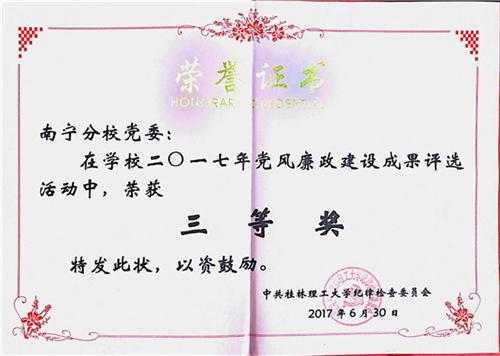 荣誉证书
HONORARY CREDENTIAL
南宁分校党委：
在学校二〇一七年党风廉政建设成果评选
活动中，荣获
三等奖
特发此状，以资鼓励。
中共桂林理工大学纪律检查委员会
2017年6月30日